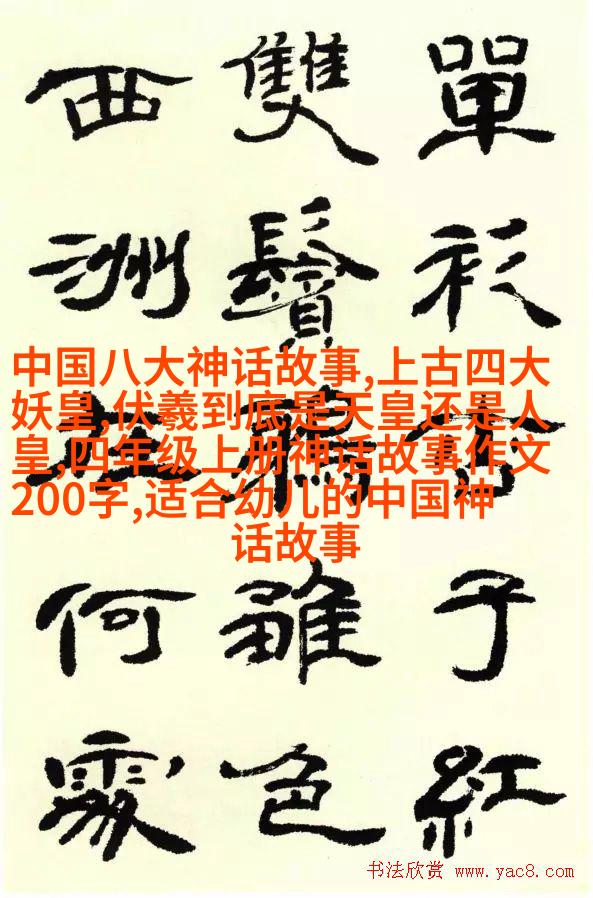 單衫杏子紅
雙鬢鴉雛色
西洲在何處
中国八大神话故事,上古四大
妖皇,伏羲到底是天皇还是人
皇,四年级上册神话故事作文
200字,适合幼儿的中国神
话故事
书法欣赏 www.yac8.com